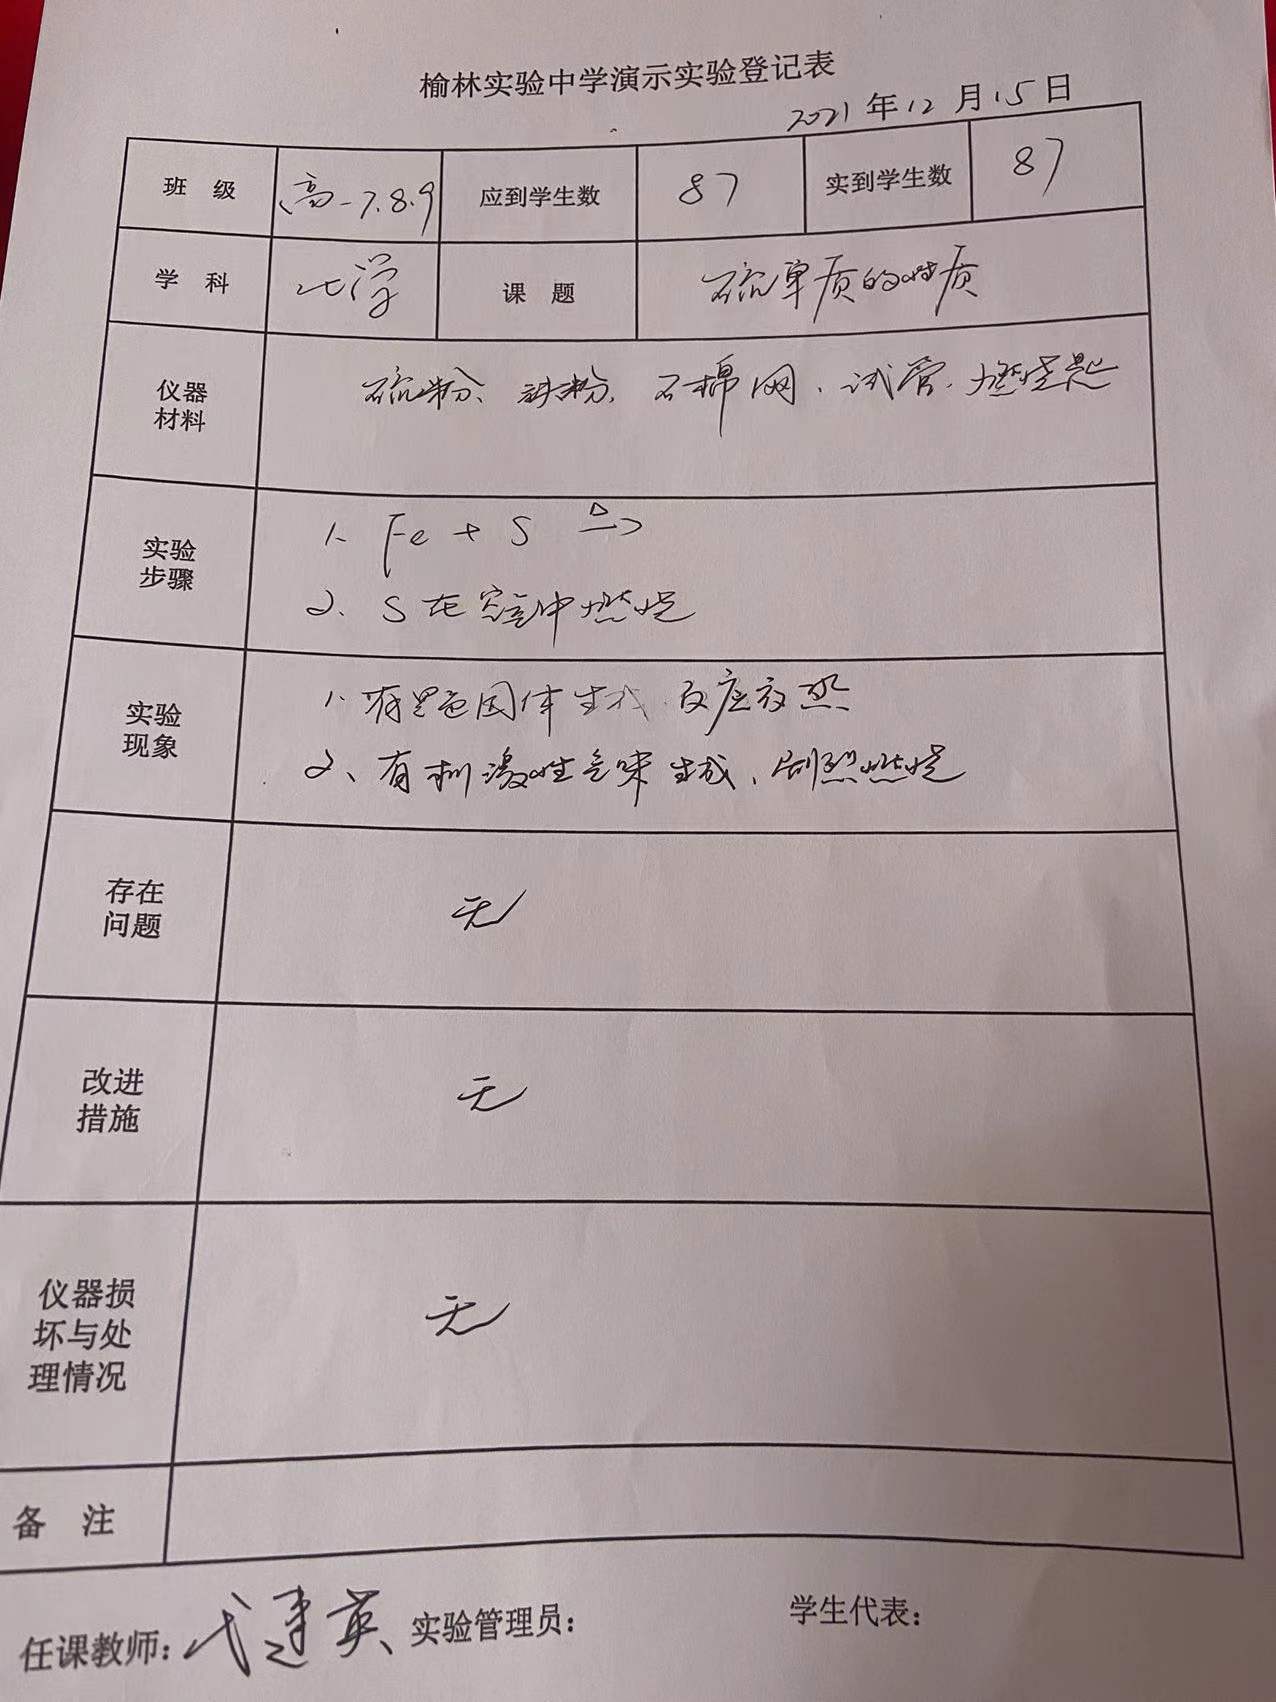 榆林实验中学演示实验登记表
2021年12月15日
班 级 高一7.8.9 应到学生数 87 实到学生数 87
学 科 化学 课 题 硫单质的性质
仪器
材料
硫粉、铁粉、石棉网、试管、燃烧匙
实验
步骤
1、Fe + S △→
2、S在空气中燃烧
实验
现象
1、有黑色固体生成 反应放热
2、有刺激性气味生成、剧烈燃烧
存在
问题
无
改进
措施
无
仪器损
坏与处
理情况
无
备 注
任课教师：代建英 实验管理员： 学生代表：